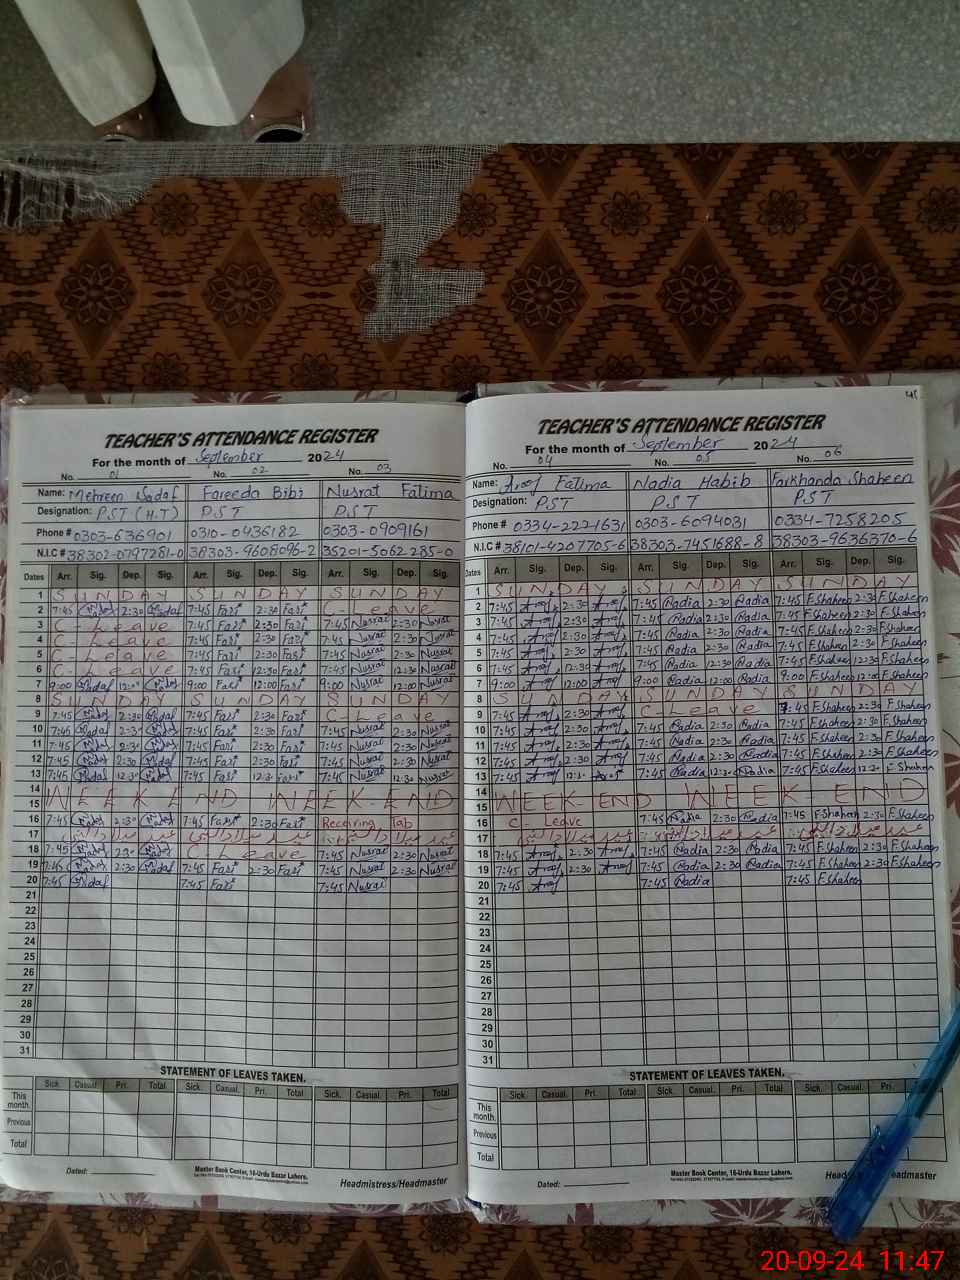 TEACHER'S ATTENDANCE REGISTER
For the month of September 2024
No. 01 No. 02 No. 03
Name: Mehreen Sadaf Fareeda Bibi Nusrat Fatima
Designation: PST (H.T) PST PST
Phone # 0303-636901 0310-0436182 0303-0909161
N.I.C # 38302-0797281-0 38303-9608096-2 35201-5062285-0
Dates Arr. Sig. Dep. Sig. Arr. Sig. Dep. Sig. Arr. Sig. Dep. Sig.
1 SUNDAY SUNDAY
2 7:45 Sadaf 2:30 Sadaf 7:45 Fari 2:30 Fari C-Leave
3 C-Leave 7:45 Fari 2:30 Fari 7:45 Nusrat 2:30 Nusrat
4 C-Leave 7:45 Fari 2:30 Fari 7:45 Nusrat 2:30 Nusrat
5 C-Leave 7:45 Fari 2:30 Fari 7:45 Nusrat 2:30 Nusrat
6 C-Leave 7:45 Fari 12:30 Fari 7:45 Nusrat 12:30 Nusrat
7 9:00 Sadaf 12:00 Sadaf 9:00 Fari 12:00 Fari 9:00 Nusrat 12:00 Nusrat
8 SUNDAY SUNDAY
9 7:45 Sadaf 2:30 Sadaf 7:45 Fari 2:30 Fari C-Leave
10 7:45 Sadaf 2:30 Sadaf 7:45 Fari 2:30 Fari 7:45 Nusrat 2:30 Nusrat
11 7:45 Sadaf 2:30 Sadaf 7:45 Fari 2:30 Fari 7:45 Nusrat 2:30 Nusrat
12 7:45 Sadaf 2:30 Sadaf 7:45 Fari 2:30 Fari 7:45 Nusrat 2:30 Nusrat
13 7:45 Sadaf 12:30 Sadaf 7:45 Fari 12:30 Fari 7:45 Nusrat 12:30 Nusrat
14
15 WEEK END WEEK-END
16 7:45 Sadaf 2:30 Sadaf 7:45 Fari 2:30 Fari Receiving Tab
17
18 7:45 Sadaf 2:30 Sadaf C-Leave 7:45 Nusrat 2:30 Nusrat
19 7:45 Sadaf 2:30 Sadaf 7:45 Fari 2:30 Fari 7:45 Nusrat 2:30 Nusrat
20 7:45 Sadaf 7:45 Fari 7:45 Nusrat
21
22
23
24
25
26
27
28
29
30
31
STATEMENT OF LEAVES TAKEN.
Sick. Casual. Pri. Total Sick. Casual. Pri. Total Sick. Casual. Pri. Total
This month.
Previous
Total
Dated:
Master Book Center, 16-Urdu Bazar Lahore.
Headmistress/Headmaster
TEACHER'S ATTENDANCE REGISTER
For the month of September 2024
No. 04 No. 05 No. 06
Name: Fatima Nadia Habib Farkhanda Shaheen
Designation: PST PST PST
Phone # 0334-2221631 0303-6094031 0334-7258205
N.I.C # 38101-4207705-6 38303-7451688-8 38303-9636370-6
Dates Arr. Sig. Dep. Sig. Arr. Sig. Dep. Sig. Arr. Sig. Dep. Sig.
1 SUNDAY SUNDAY SUNDAY
2 7:45 2:30 7:45 Nadia 2:30 Nadia 7:45 F.Shaheen 2:30 F.Shaheen
3 7:45 2:30 7:45 Nadia 2:30 Nadia 7:45 F.Shaheen 2:30 F.Shaheen
4 7:45 2:30 7:45 Nadia 2:30 Nadia 7:45 F.Shaheen 2:30 F.Shaheen
5 7:45 2:30 7:45 Nadia 2:30 Nadia 7:45 F.Shaheen 2:30 F.Shaheen
6 7:45 12:30 7:45 Nadia 12:30 Nadia 7:45 F.Shaheen 12:30 F.Shaheen
7 9:00 12:00 9:00 Nadia 12:00 Nadia 9:00 F.Shaheen 12:00 F.Shaheen
8 SUNDAY SUNDAY SUNDAY
9 7:45 2:30 C-Leave 7:45 F.Shaheen 2:30 F.Shaheen
10 7:45 2:30 7:45 Nadia 2:30 Nadia 7:45 F.Shaheen 2:30 F.Shaheen
11 7:45 2:30 7:45 Nadia 2:30 Nadia 7:45 F.Shaheen 2:30 F.Shaheen
12 7:45 2:30 7:45 Nadia 2:30 Nadia 7:45 F.Shaheen 2:30 F.Shaheen
13 7:45 12:30 7:45 Nadia 12:30 Nadia 7:45 F.Shaheen 12:30 F.Shaheen
14
15 WEEK-END WEEK-END
16 C-Leave 7:45 Nadia 2:30 Nadia 7:45 F.Shaheen 2:30 F.Shaheen
17
18 7:45 2:30 7:45 Nadia 2:30 Nadia 7:45 F.Shaheen 2:30 F.Shaheen
19 7:45 2:30 7:45 Nadia 2:30 Nadia 7:45 F.Shaheen 2:30 F.Shaheen
20 7:45 7:45 Nadia 7:45 F.Shaheen
21
22
23
24
25
26
27
28
29
30
31
STATEMENT OF LEAVES TAKEN.
Sick. Casual. Pri. Total Sick. Casual. Pri. Total Sick. Casual. Pri.
This month.
Previous
Total
Dated:
Master Book Center, 16-Urdu Bazar Lahore.
20-09-24 11:47